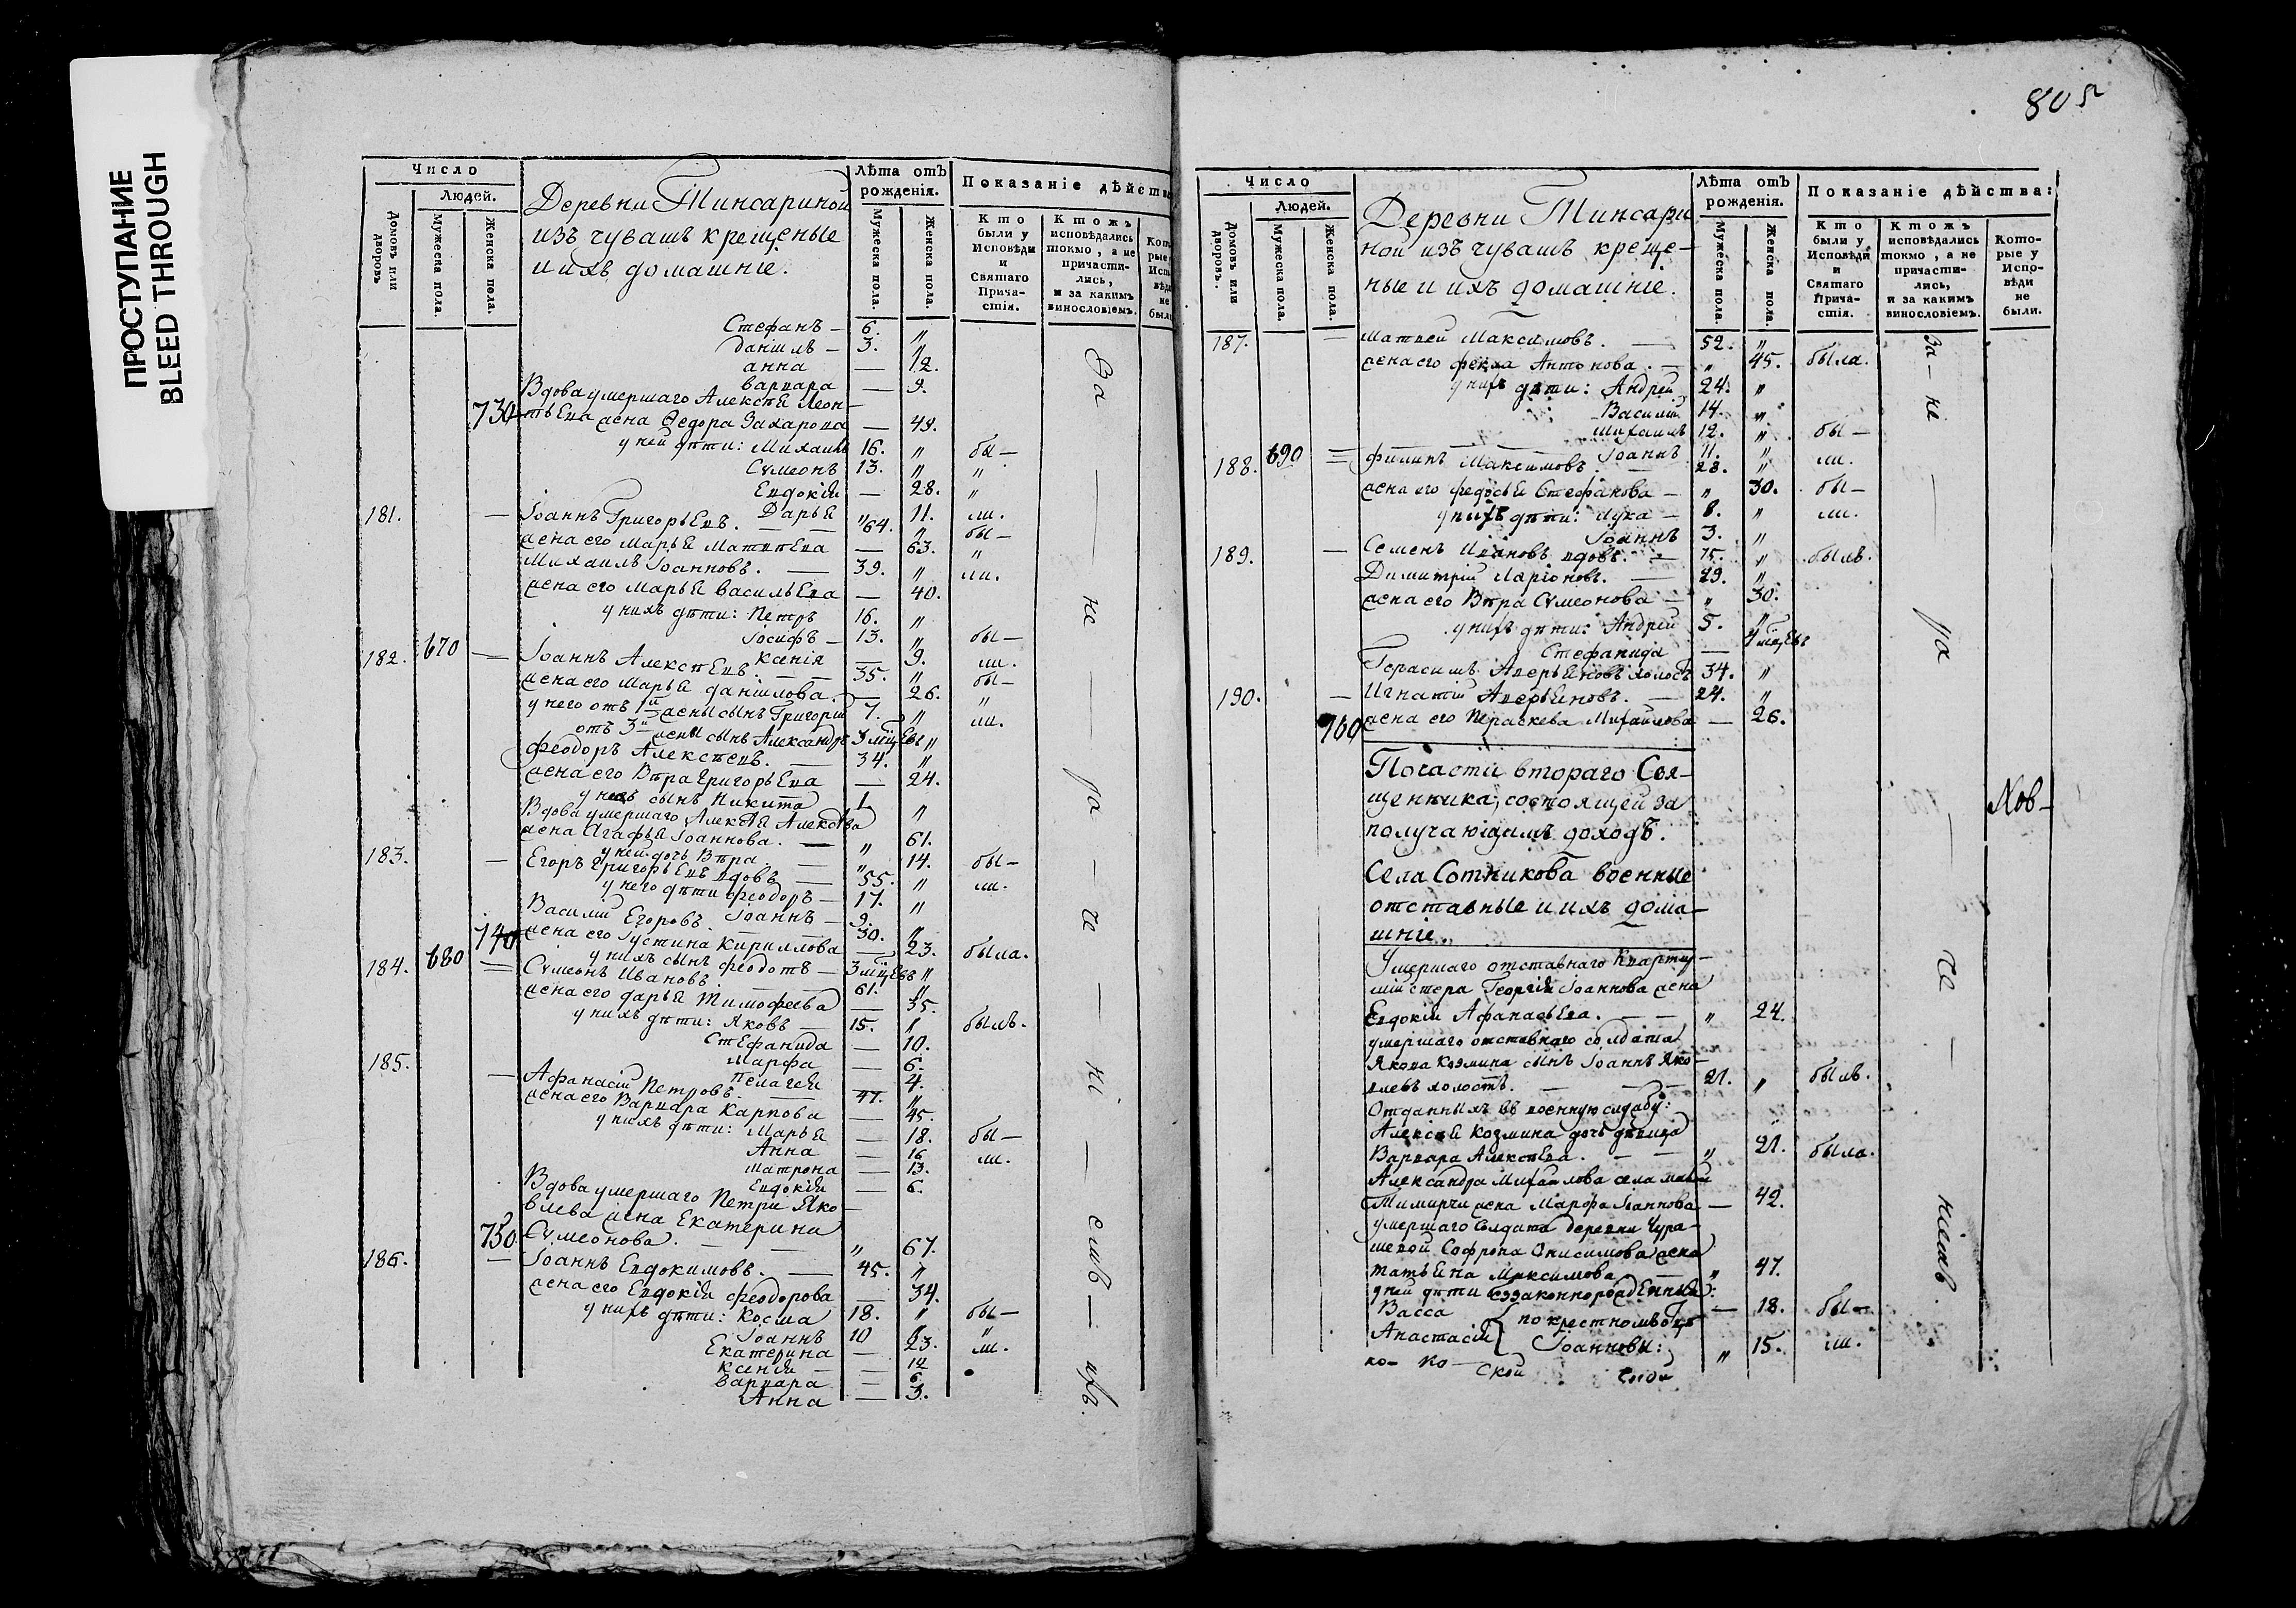 ПРОСТУПАНИЕ
BLEED THROUGH
Число
Людей.
Домовъ или дворовъ.
Мужеска пола.
Женска пола.
Деревни Тинсариной
изъ чувашъ крещеные
и ихъ домашніе.
Лѣта отъ рожденія.
Мужеска пола.
Женска пола.
Показаніе дѣйства
Кто были у Исповѣди и Святаго Прича-стія.
Ктожъ исповѣдались токмо, а не причасти-лись, и за какимъ винословіемъ.
Стефанъ — 6. "
Даніилъ — 3. "
Анна — 12.
Варвара — 9.
Вдова умершаго Алексѣя Леон-
730 тьева жена Ѳедора Захарова — 49.
у ней дѣти: Михаилъ 16. " бы—
Сѵмеонъ 13. " "
Евдокія — 28. "
Дарья " 11. ли.
181. — Іоаннъ Григорьевъ. — 64. " бы—
жена его Марья Матвѣева — 63. "
Михаилъ Іоанновъ. — 39. " ли.
жена его Марья Васильева — 40.
у нихъ дѣти: Петръ 16. "
Іосифъ — 13. " бы—
670 Ксенія — 9. ли.
182. — Іоаннъ Алексѣевъ. — 35. " бы—
жена его Марья Даніилова. — 26. "
у него отъ 1й жены сынъ Григорій 7. " ли.
отъ 3й жены сынъ Александръ 3 мцевъ "
Ѳеодоръ Алексѣевъ. — 34. "
жена его Вѣра Григорьева — 24.
у нихъ сынъ Никита 1 "
Вдова умершаго Алексѣя Алексѣева
жена Агафья Іоаннова. — " 61.
у ней дочь Вѣра. — " 14. бы—
183. — Егоръ Григорьевъ вдовъ — 55. " ли.
у него дѣти Ѳеодоръ — 17. "
Іоаннъ — 9. "
Василій Егоровъ. 30. "
740 жена его Іустина Кириллова — 23. была.
680 у нихъ сынъ Ѳеодотъ — 3 мцевъ "
184. Сѵмеонъ Ивановъ. 61. "
жена его Дарья Тимофеева — 35.
у нихъ дѣти: Яковъ — 15. " былъ.
Стефанида — 10.
Марфа — 6.
Пелагея — 4.
185. — Афанасій Петровъ. — 47. "
жена его Варвара Карпова — 45.
у нихъ дѣти: Марья — 18. бы—
Анна — 16 ли.
Матрона — 13.
Евдокія — 6.
Вдова умершаго Петра Яко-
влева жена Екатерина
750. Сѵмеонова. — " 67.
186. — Іоаннъ Евдокимовъ. — 45. "
жена его Евдокія Ѳеодорова — 34.
у нихъ дѣти: Косма 18. " бы—
Іоаннъ 10 " "
Екатерина — 23. ли.
Ксенія — 12
Варвара — 6
Анна — 3.
805
Число
Людей.
Домовъ или дворовъ.
Мужеска пола.
Женска пола.
Деревни Тинсари
ной изъ чувашъ креще-
ные и ихъ домашніе.
Лѣта отъ рожденія.
Мужеска пола.
Женска пола.
Показаніе дѣйства:
Кто были у Исповѣди и Святаго Прича-стія.
Ктожъ исповѣдались токмо, а не причасти-лись, и за какимъ винословіемъ.
Кото-рые у Испо-вѣди не были.
187. — Матвей Максимовъ. — 52. "
жена его Фекла Антонова. — " 45. была.
у нихъ дѣти: Андрей 24. "
Василій 14. "
Михаилъ 12. " бы—
690 Іоаннъ 11. " ли.
188. Филипъ Максимовъ. 28. "
жена его Федосья Стефанова — " 30. бы—
у нихъ дѣти: Лука — 8. " ли.
Іоаннъ 3. "
189. — Семенъ Ивановъ вдовъ. — 75. " былъ.
Димитрій Ларіоновъ. — 29. "
жена его Вѣра Сѵмеонова — " 30.
у нихъ дѣти: Андрей 5. "
Стефанида — 4 мцевъ
Герасимъ Аверьяновъ холостъ 34. "
190. — Игнатій Аверьяновъ. — 24. "
жена его Пераскева Михайлова — 26.
По части втораго Свя-
щенника, состоящей за
получающимъ доходъ.
Села Сотникова военные
отставные и ихъ дома-
шніе.
Умершаго отставнаго квартир-
мистера Георгія Іоаннова жена
Евдокія Афанасьева. — — " 24.
умершаго отставнаго солдата
Якова Козмина сынъ Іоаннъ Яко-
влевъ холостъ. — 21. " былъ.
Отданныхъ въ военную службу:
Алексѣя Козмина дочь дѣвица
Варвара Алексѣева. — — " 21. была.
Александра Михайлова села малой
Тимирчи жена Марфа Іоаннова — 42.
умершаго солдата деревни Чура-
шевой Софрона Онисимова жена
Татьяна Максимова " 47.
у ней дѣти беззаконнорожденныя:
Васса — 18. бы—
по крестномъ отцѣ
Анастасія Іоанновы: " 15. ли.
ко— ко— ской